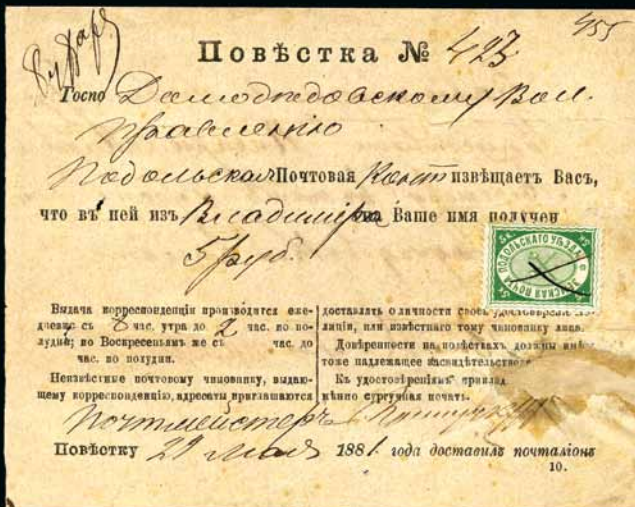 455
Повѣстка № 423
Госпо Домодѣдовскому Вол.
Правленію
Подольская Почтовая Конт извѣщаетъ Васъ,
что въ ней изъ Владимира на Ваше имя получен
5 руб.
5 К. ПОДОЛЬСКАГО УѢЗДА
ЗЕМСКАЯ ПОЧТА 5 К.
Выдача корреспонденціи производится еже-
дневно съ 8 час. утра до 2 час. по по-
лудни; по Воскресеньямъ же съ час. до
час. по полудни.
Неизвѣстные почтовому чиновнику, выдаю-
щему корреспонденцію, адресаты приглашаются
доставлять о личности своей удостовѣреніе
лиціи, или извѣстнаго тому чиновнику лица.
Довѣренности на повѣсткахъ должны имѣ
тоже надлежащее засвидѣтельство
Къ удостовѣреніямъ приклад
ѣнно сургучная печать.
Почтмейстеръ
Повѣстку 29 мая 1881 года доставилъ почталіонъ
10.